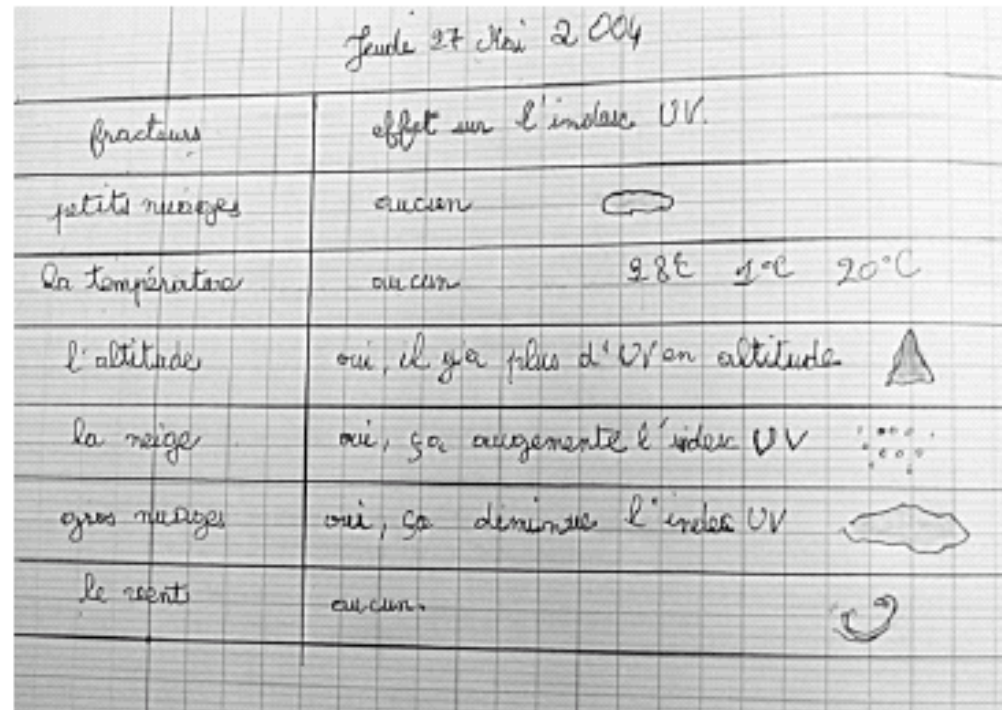 Jeudi 27 Mai 2004
fracteurs effet sur l'index UV.
petits nuages aucun
la température aucun 28°C 1°C 20°C
l'altitude oui, il y a plus d'UV en altitude
la neige oui, ça augmente l'index UV
gros nuages oui, ça diminue l'index UV
le vent aucun.